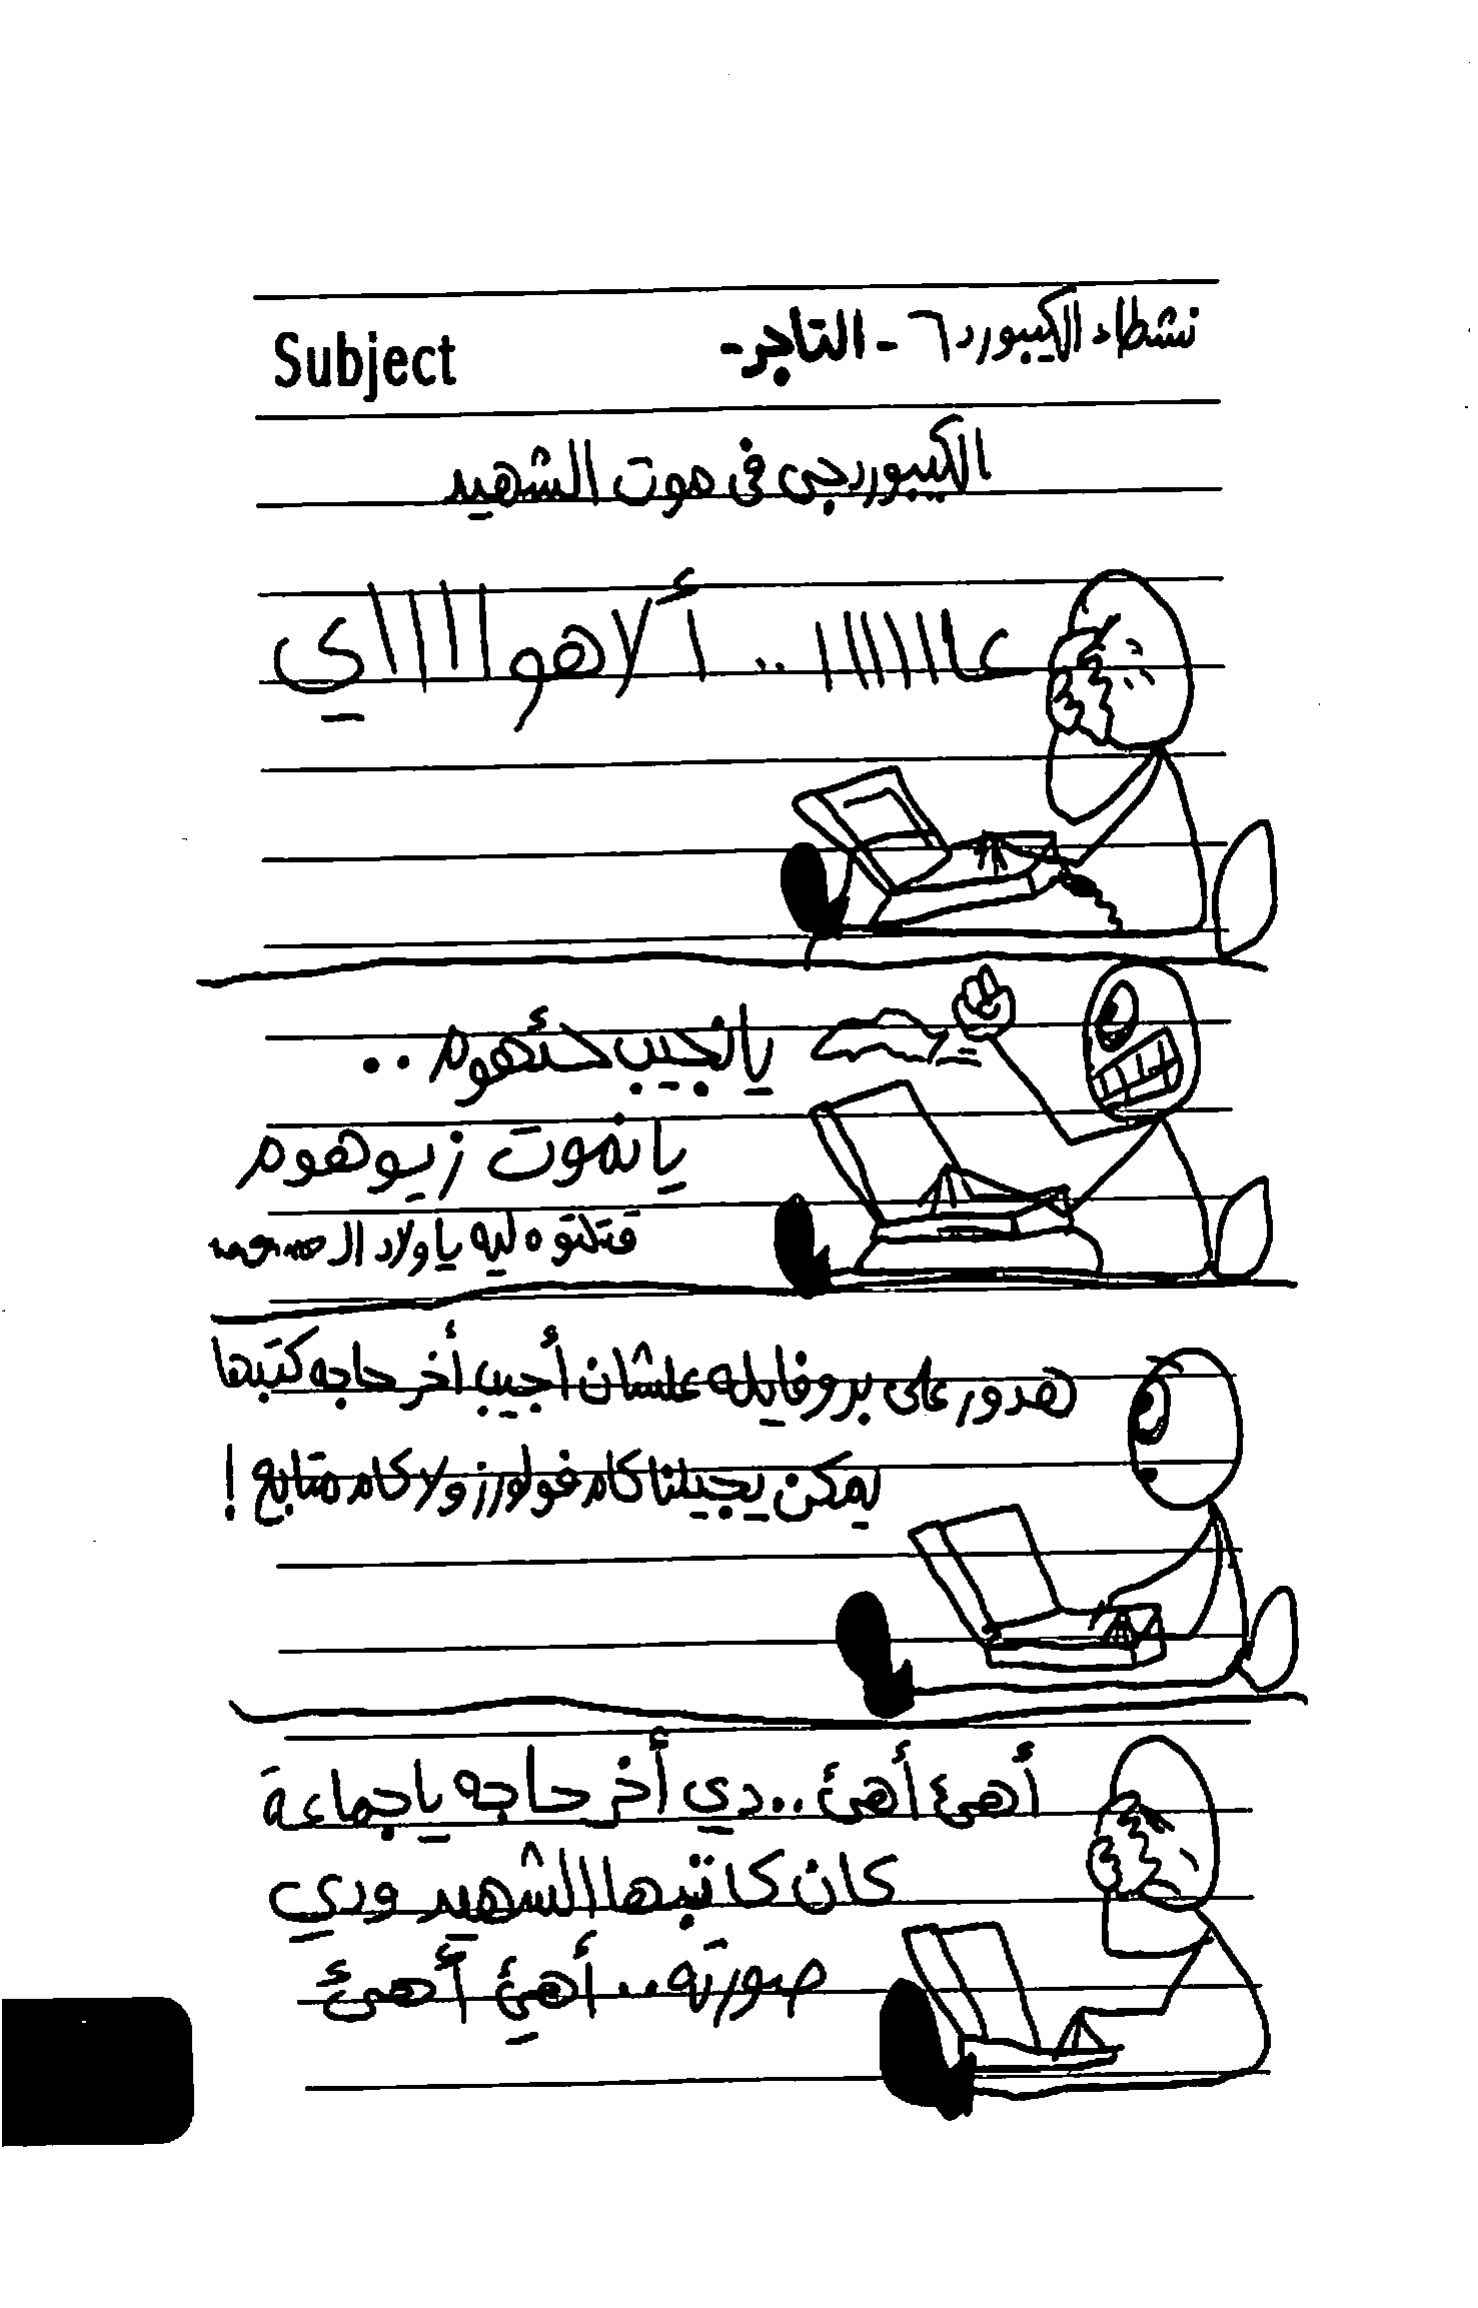 نشطاء الكيبورد ٦ - التاجر -
Subject
الكيبوردجى فى موت الشهيد
عاااااااا .. ألاهوااااي
يا نجيب حئهوم ..
يا نموت زيوهوم
قتلتوه ليه يا ولاد ال
هدور على بروفايله علشان أجيب أخر حاجه كتبها
يمكن يجيلنا كام فولورز ولا كام متابع !
أهئ أهئ .. دي أخر حاجه يا جماعة
كان كاتبها الشهيد ودي
صورته .. أهئ أهئ